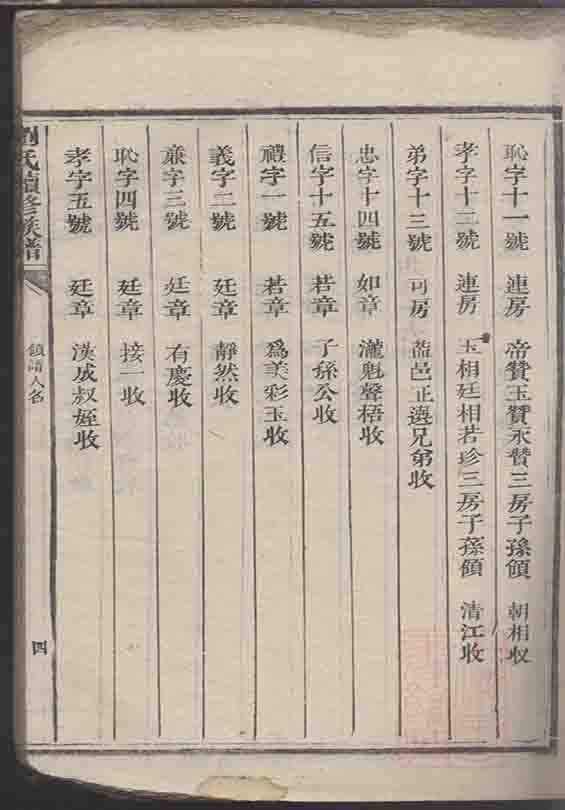 恥字十一號 連房 帝贊玉贊永贊三房子孫領 朝相収
孝字十二號 連房 玉相廷相若珍三房子孫領 清江收
弟字十三號 可房 藍邑正選兄弟收
忠字十四號 如章 瀧魁聲梧收
信字十五號 若章 子孫公收
禮字一號 若章 爲美彩玉收
義字二號 廷章 靜然收
亷字三號 廷章 有慶收
恥字四號 廷章 接一收
孝字五號 廷章 漢成叔姪收
劉氏續修族譜
領譜人名
四